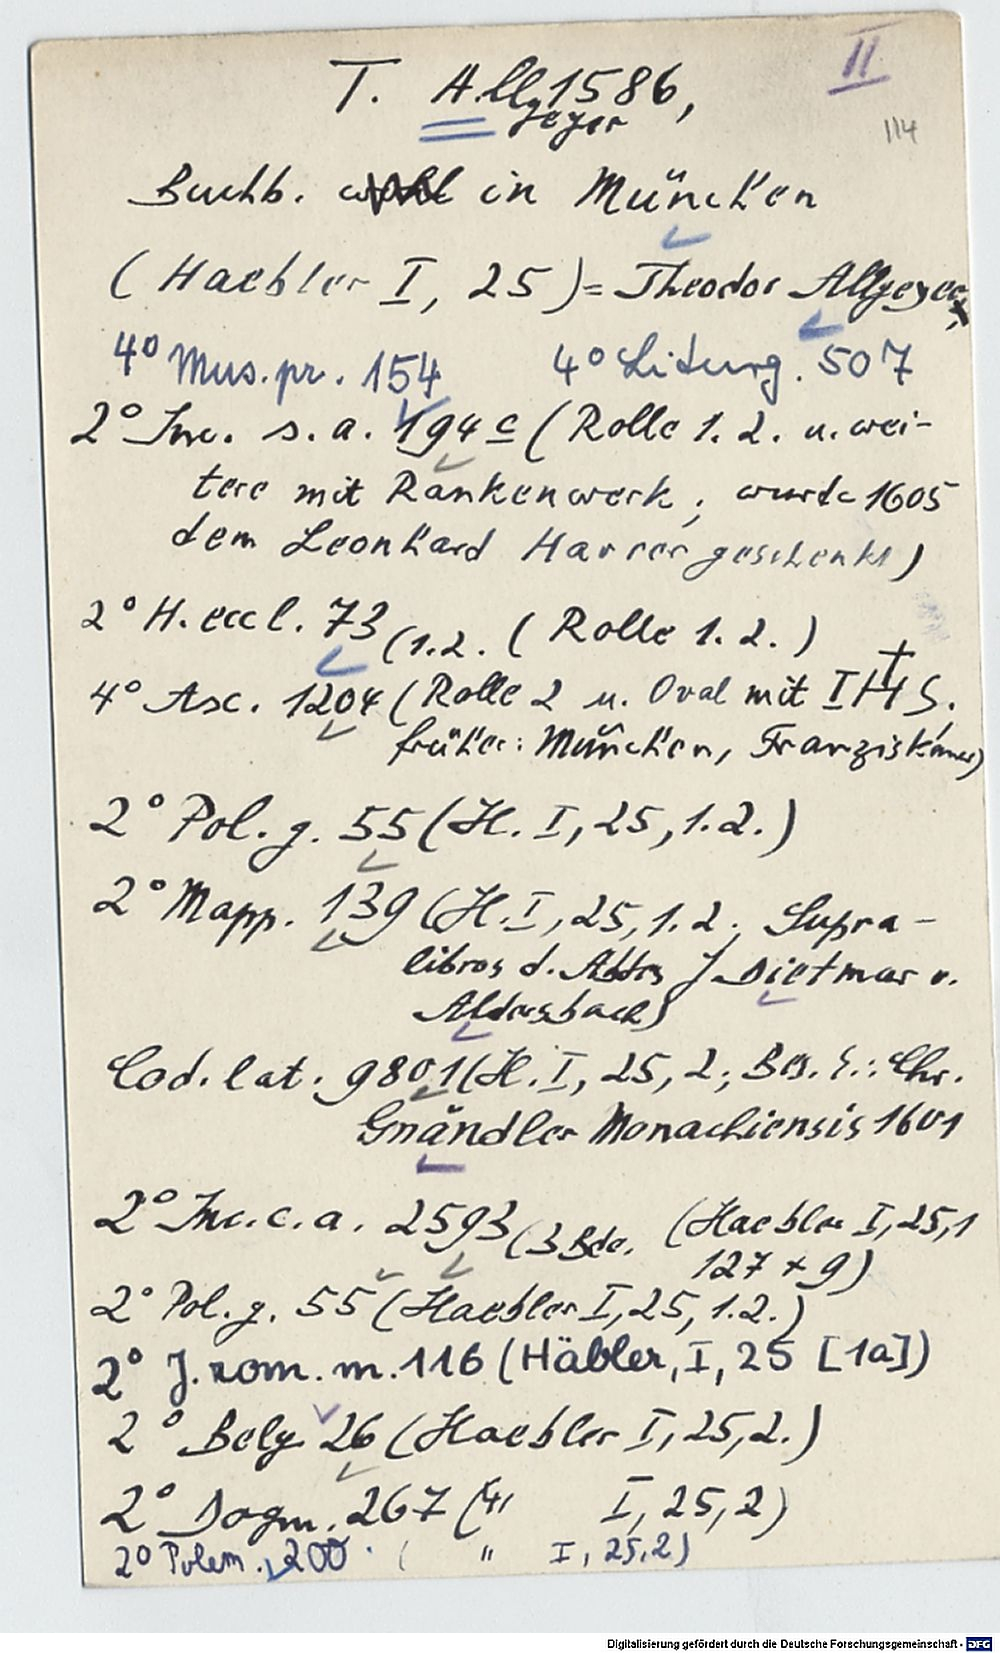 II
T. Allgeyer 1586,
114
Buchb. wohl in München
(Haebler I, 25) = Theodor Allgeyer
4° Mus. pr. 154 4° Liturg. 507
2° Inc. s. a. 194 c (Rolle 1. 2. u. wei-
tere mit Rankenwerk; wurde 1605
dem Leonhard Harrer geschenkt)
2° H. eccl. 73 (1.2. (Rolle 1. 2.)
4° Asc. 1204 (Rolle 2 u. Oval mit IHS,
früher: München, Franziskaner)
2° Pol. g. 55 (H. I, 25, 1.2.)
2° Mapp. 139 (H. I, 25, 1.2; Supra-
libros d. Abtes J Dietmar v.
Aldersbach)
Cod. lat. 9801 (H. I, 25, 2; Bes. E.: Chr.
Gnändler Monachiensis 1601
2° Inc. c. a. 2593 (3 Bde. (Haebler I, 25, 1
127 x 9)
2° Pol. g. 55 (Haebler I, 25, 1.2.)
2° J. rom. m. 116 (Häbler, I, 25 [1a])
2° Belg. 26 (Haebler I, 25, 2.)
2° Dogm. 267 (" I, 25, 2)
2° Polem. 200 ( " I, 25, 2)
Digitalisierung gefördert durch die Deutsche Forschungsgemeinschaft - DFG